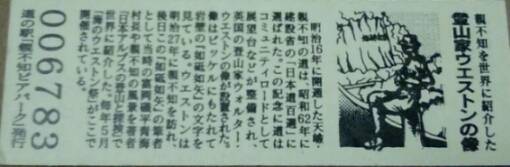 親不知を世界に紹介した
登山家ウエストンの像
明治16年に開通した天嶮・
親不知の道は、昭和62年に
建設省の「日本道百選」に
選ばれた。この記念に道は
コミュニティロードとして
展望台などが整備され、
英国の登山家ウォルター・
ウエストンの像が設置された。
像はピッケルにもたれて
岩壁の「如砥如矢」の文字を
見ている。ウエストンは
明治27年に親不知を訪れ、
後日に「如砥如矢」の筆者
として当時の富岡磯平青海
村長や親不知の風景を著者
「日本アルプスの登山と探検」で
世界に紹介した。毎年5月
「海のウエストン祭」がここで
開催されている。
道の駅「親不知ピアパーク」発行
006783